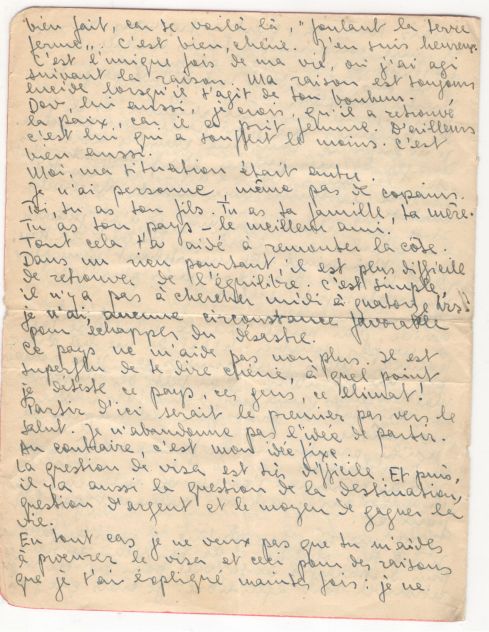 bien fait, car te voilà là, "foulant la terre
ferme". C'est bien, chérie. J'en suis heureux.
C'est l'unique fois de ma vie, où j'ai agi
suivant la raison. Ma raison est toujours
lucide lorsqu'il s'agit de ton bonheur.
Dov, lui aussi, je crois, qu'il a retrouvé
la paix, car il a pris femme. D'ailleurs
c'est lui qui a souffert le moins. C'est
bien aussi.
Moi, ma situation était autre.
Je n'ai personne, même pas de copains.
Toi, tu as ton fils. Tu as ta famille, ta mère.
Tu as ton pays - le meilleur ami.
Tout cela t'a aidé à remonter la côte.
Dans un rien pourtant, il est plus difficile
de retrouver de l'équilibre. C'est simple,
il n'y a pas à chercher midi à quatorze hrs!
je n'ai aucune circonstance favorable
pour échapper du désastre.
Ce pays ne m'aide pas non plus. Il est
superflu de te dire chérie, à quel point
je déteste ce pays, ces gens, ce climat!
Partir d'ici serait le premier pas vers le
salut. Je n'abandonne pas l'idée de partir.
Au contraire, c'est mon idée fixe.
La question de visa est très difficile. Et puis,
il y a aussi la question de la destination,
question d'argent et le moyen de gagner la
vie.
En tout cas je ne veux pas que tu m'aides
à procurer le visa et ceci pour des raisons
que je t'ai expliqué maintes fois: je ne